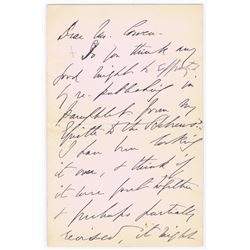 Dear Mr. Cowen -
Do you think any
good might be effected
by re-publishing in
pamphlet form my
"Epistle to the Hebrews"?
I have been looking
it over, & think if
it were put together
& perhaps partially
revised, it might